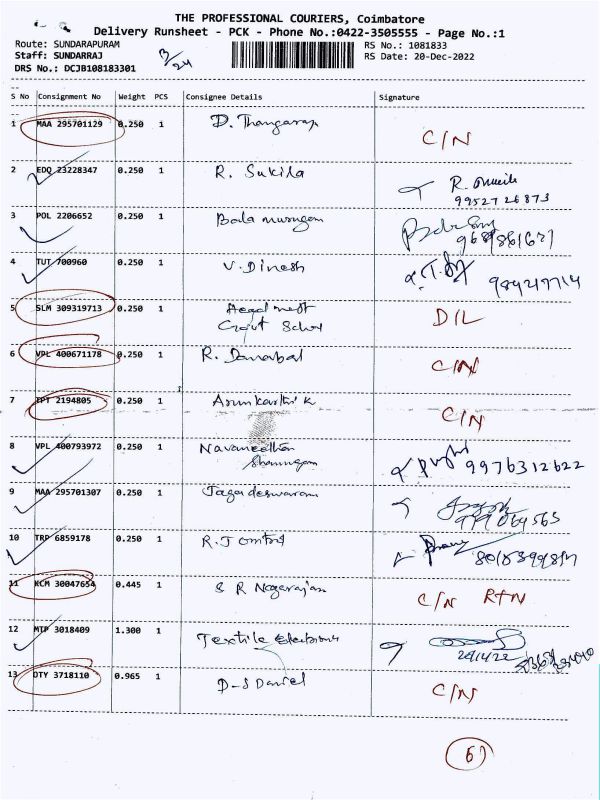 THE PROFESSIONAL COURIERS, Coimbatore
Delivery Runsheet - PCK - Phone No.:0422-3505555 - Page No.:1
Route: SUNDARAPURAM RS No.: 1081833
Staff: SUNDARRAJ RS Date: 20-Dec-2022
DRS No.: DCJB108183301
S No Consignment No Weight PCS Consignee Details Signature
1 MAA 295701129 0.250 1 D. Thangaraj C/N
2 EDQ 23228347 0.250 1 R. Sukila R.
9952726873
3 POL 2206652 0.250 1 Bala murugan
4 TUT 700960 0.250 1 V. Dinesh
5 SLM 309319713 0.250 1 D/L
6 VPL 400671178 0.250 1 R. Danabal C/N
7 TPT 2194805 0.250 1 Arunkarthik C/N
8 VPL 400793972 0.250 1 Navaneethan
Shanmugam 9976312622
9 MAA 295701307 0.250 1 Jagadeswaran
10 TRP 6859178 0.250 1
11 KCM 30047654 0.445 1 S R Nagarajan C/N RTN
12 MTP 3018409 1.300 1 Textile
13 DTY 3718110 0.965 1 D-S Daniel C/N